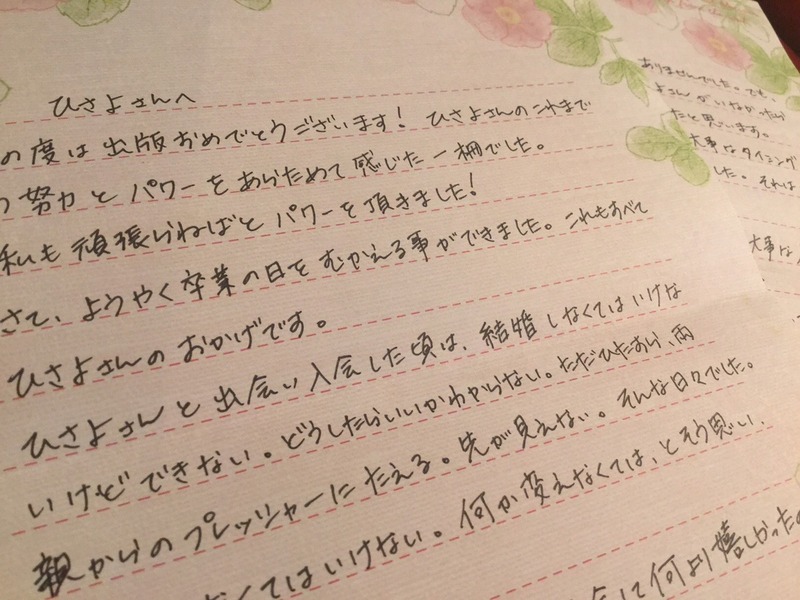 ひさよさんへ
の度は出版おめでとうございます！ ひさよさんのこれまで
努力とパワーをあらためて感じた一冊でした。
私も頑張らねばとパワーを頂きました！
さて、ようやく卒業の日をむかえる事ができました。これもすべて
ひさよさんのおかげです。
ひさよさんと出会い入会した頃は、結婚しなくてはいけな
いけどできない。どうしたらいいかわからない。ただひたすら、両
親からのプレッシャーにたえる。先が見えない。そんな日々でした。
くてはいけない。何か変えなくては、とそう思い、
に何より嬉しかった
ありませんでした。でも、
よさんがいなかったら
たと思います。
大事なタイミング
した。それは
大事な